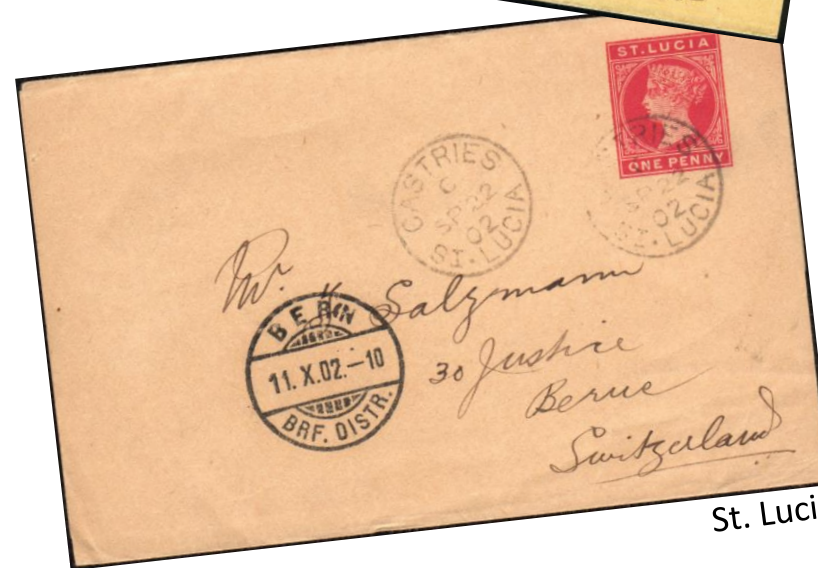 ST.LUCIA
ONE PENNY
CASTRIES
C
SP 22
02
ST. LUCIA
CASTRIES
SP 22
02
ST. LUCIA
Mr. Salzmann
30 Justice
Berne
Switzerland
BERN
11. X.02.–10
BRF. DISTR.
St. Luci